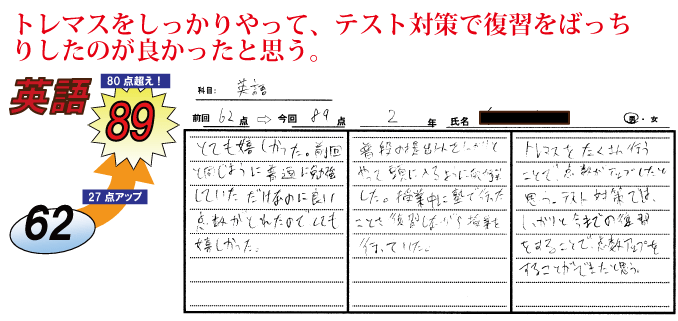 トレマスをしっかりやって、テスト対策で復習をばっち
りしたのが良かったと思う。
英語
80点超え！
89
27点アップ
62
科目： 英語
前回 62点 ⇨ 今回 89点 2年 氏名 男・女
とても嬉しかった。前回
と同じように普通に勉強
していただけなのに良い
点数がとれたのでとても
嬉しかった。
普段の提出
やって頭に入るように
した。授業中に塾で
ことを復習しながら授業を
行っていた。
トレマスをたくさん行う
ことで点数がアップしたと
思う。テスト対策では、
しっかりと今までの復習
をすることで、点数アップを
することができたと思う。